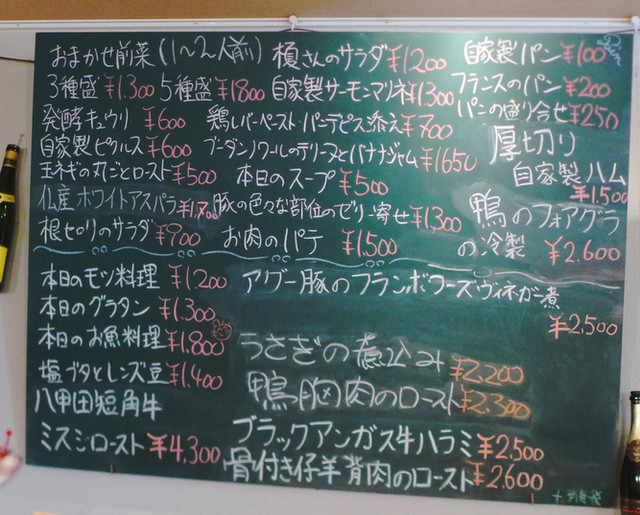 おまかせ前菜(1〜2人前)
3種盛 ¥1.300 5種盛 ¥1800
発酵キュウリ ¥600
自家製ピクルス ¥600
玉ネギの丸ごとロースト ¥500
仏産ホワイトアスパラ ¥1.700
根セロリのサラダ ¥900
槇さんのサラダ ¥1200
自家製サーモンマリネ ¥1300
鶏レバーペースト・パンデピス添え ¥700
ブーダンノワールのテリーヌとバナナジャム ¥1650
本日のスープ ¥500
豚の色々な部位のゼリー寄せ ¥1,300
お肉のパテ ¥1.500
自家製パン ¥100
フランスのパン ¥200
パンの盛り合せ ¥250
厚切り
自家製ハム
¥1.500
鴨のフォアグラ
の冷製 ¥2.600
本日のモツ料理 ¥1.200
本日のグラタン ¥1.300
本日のお魚料理 ¥1.800
塩ブタとレンズ豆 ¥1.400
八甲田短角牛
ミスジロースト ¥4,300
アグー豚のフランボワーズヴィネガー煮
¥2,500
うさぎの煮込み ¥2.200
鴨胸肉のロースト ¥2.300
ブラックアンガス牛ハラミ ¥2,500
骨付き仔羊背肉のロースト ¥2.600